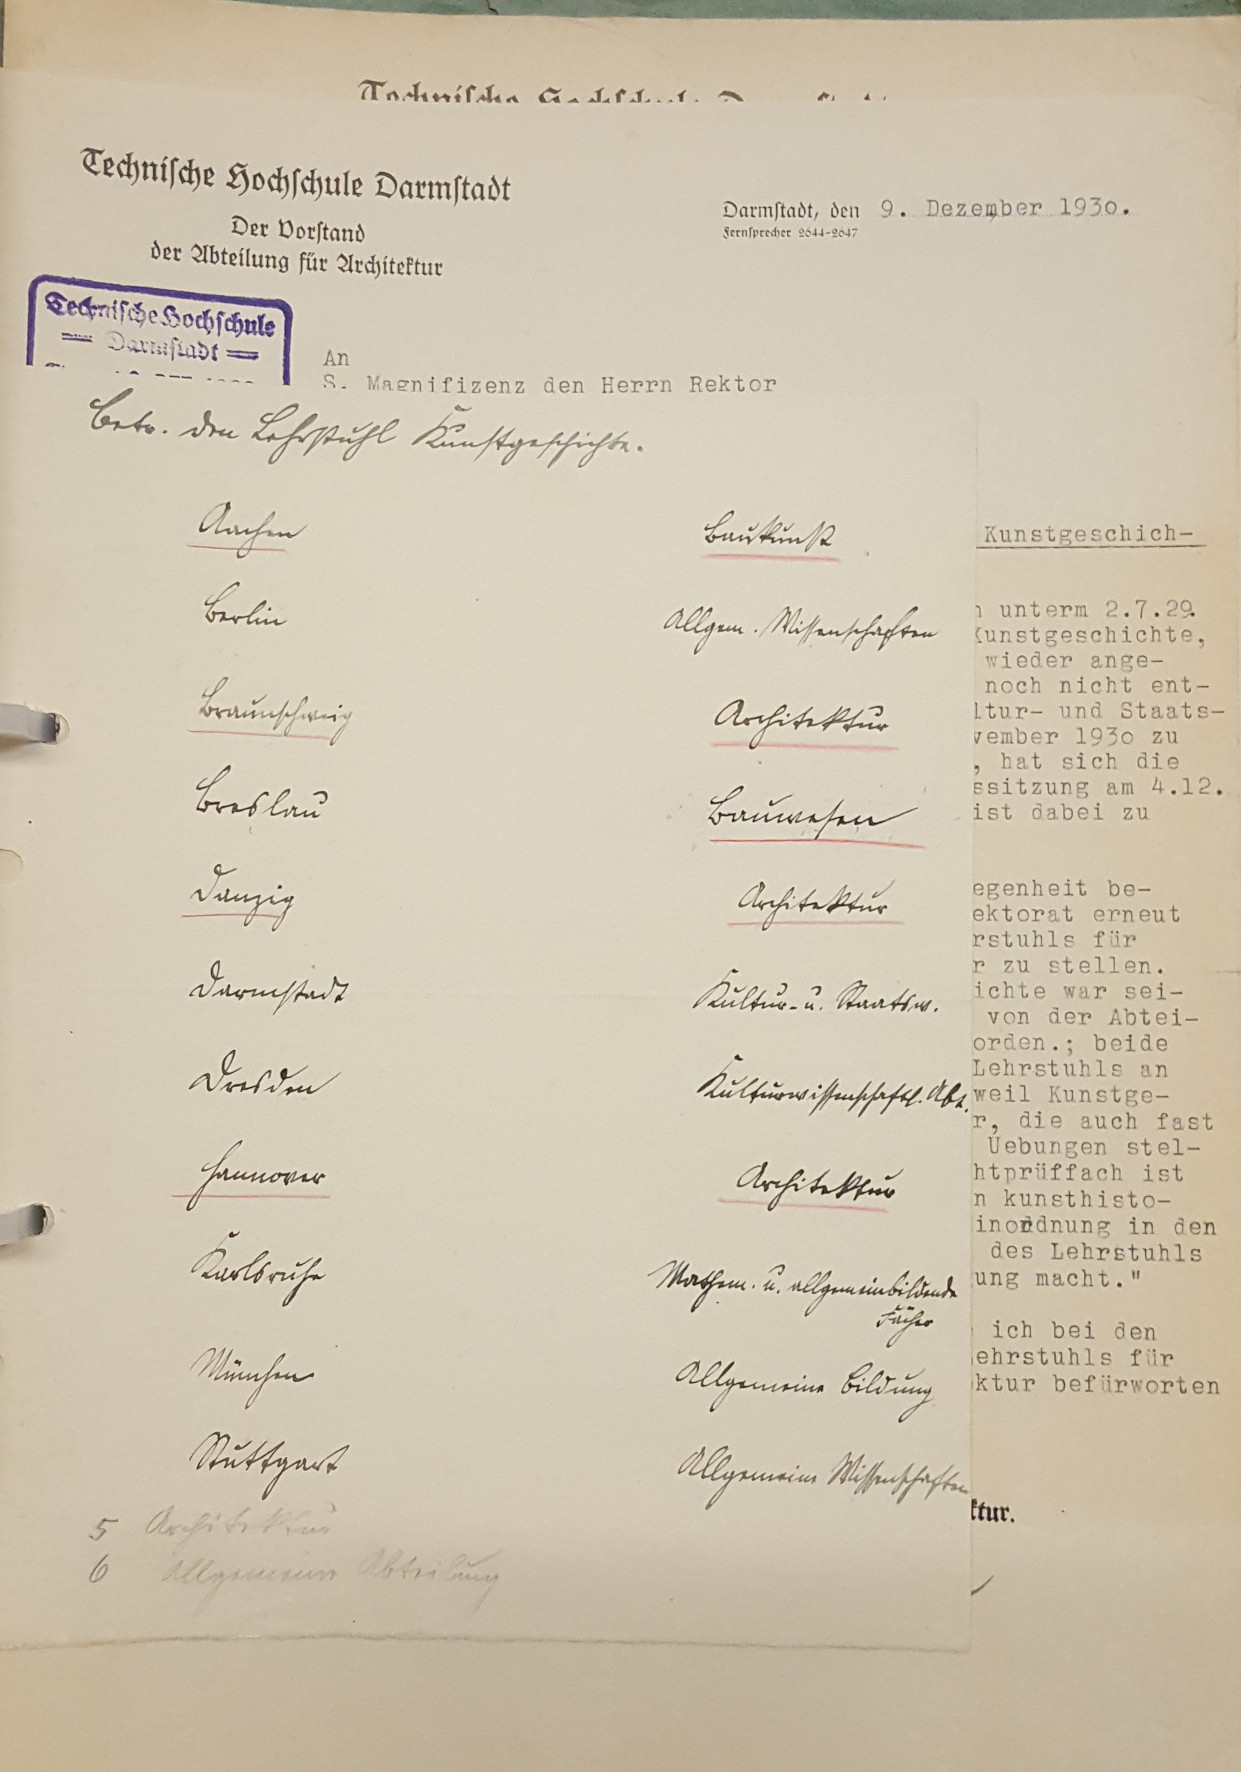 Technische Hochschule Darmstadt
Der Vorstand
der Abteilung für Architektur
Darmstadt, den 9. Dezember 1930.
Fernsprecher 2644-2647
Technische Hochschule
Darmstadt
An
S. Magnifizenz den Herrn Rektor
Betr. den Lehrstuhl Kunstgeschichte.
Aachen Baukunst
Berlin Allgem. Wissenschaften
Braunschweig Architektur
Breslau Bauwesen
Danzig Architektur
Darmstadt Kultur- u. Staatsw.
Dresden Kulturwissenschaftl. Abt.
Hannover Architektur
Karlsruhe Mathem. u. allgemeinbildende
Fächer
München Allgemeine Bildung
Stuttgart Allgemeine Wissenschaften
5 Architektur
6 Allgemeine Abteilung
Kunstgeschich-
unterm 2.7.29.
Kunstgeschichte,
wieder ange-
noch nicht ent-
ltur- und Staats-
vember 1930 zu
, hat sich die
ssitzung am 4.12.
ist dabei zu
egenheit be-
ektorat erneut
rstuhls für
r zu stellen.
ichte war sei-
von der Abtei-
orden.; beide
Lehrstuhls an
weil Kunstge-
r, die auch fast
Uebungen stel-
htprüffach ist
n kunsthisto-
inordnung in den
des Lehrstuhls
ung macht."
ich bei den
ehrstuhls für
ktur befürworten
ktur.